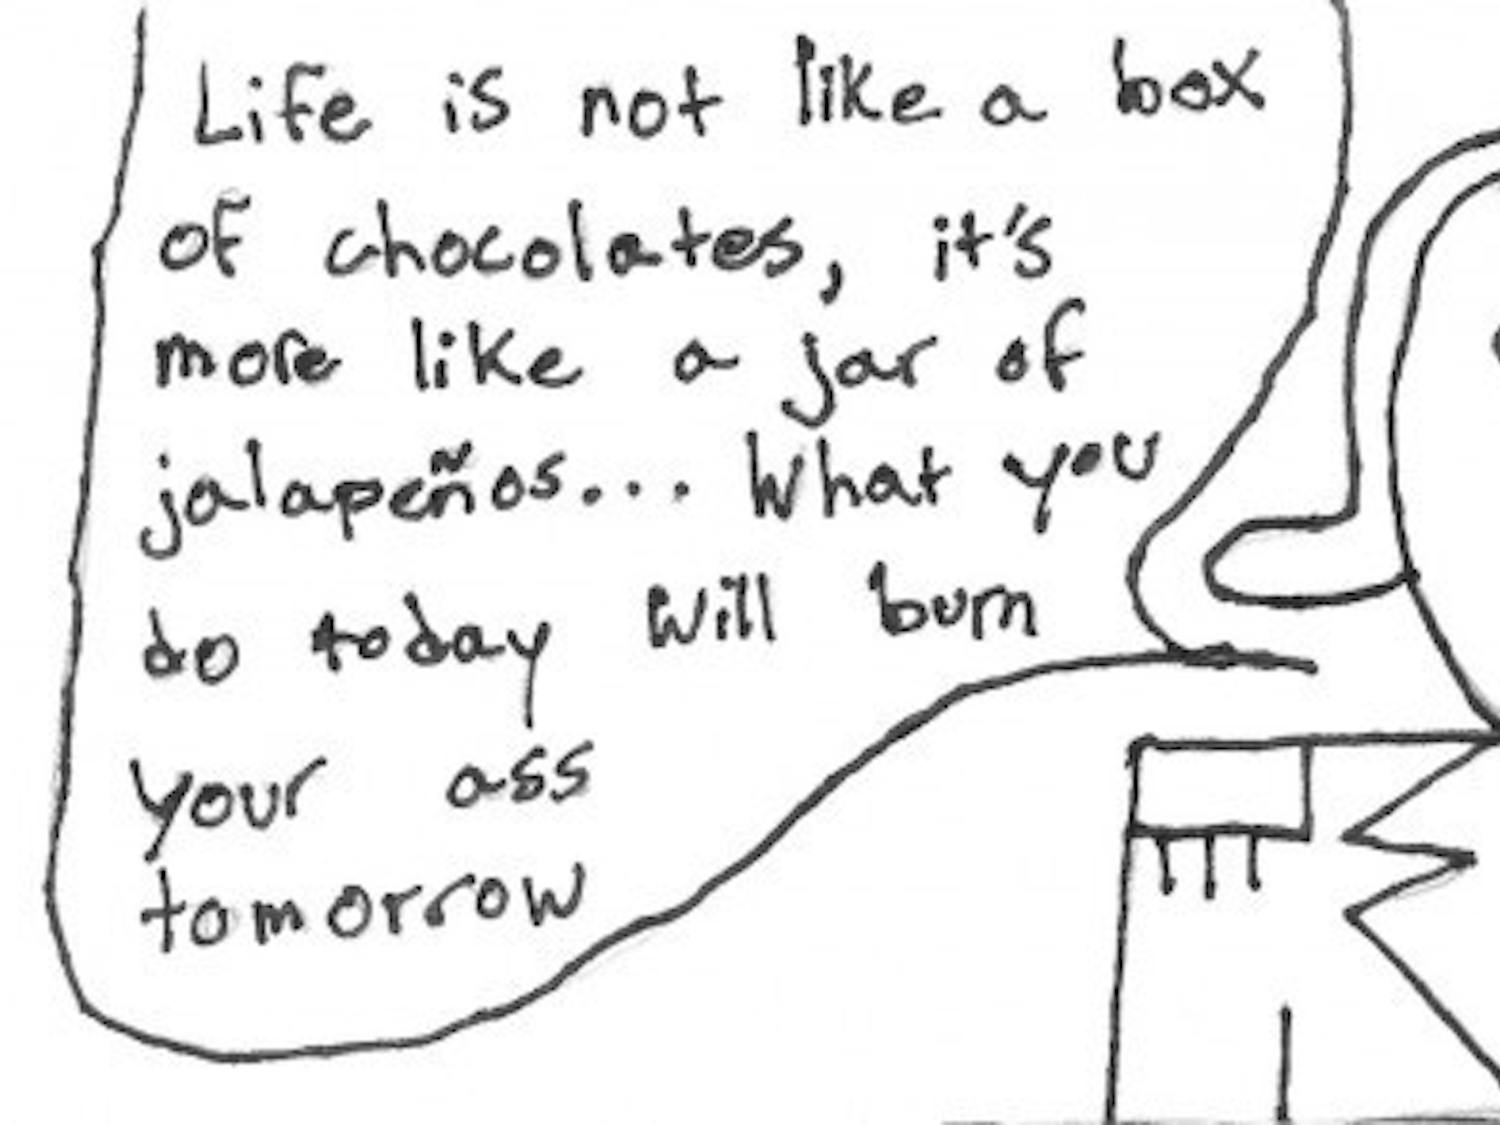 Life is not like a box
of chocolates, it's
more like a jar of
jalapeños... What you
do today will burn
your ass
tomorrow